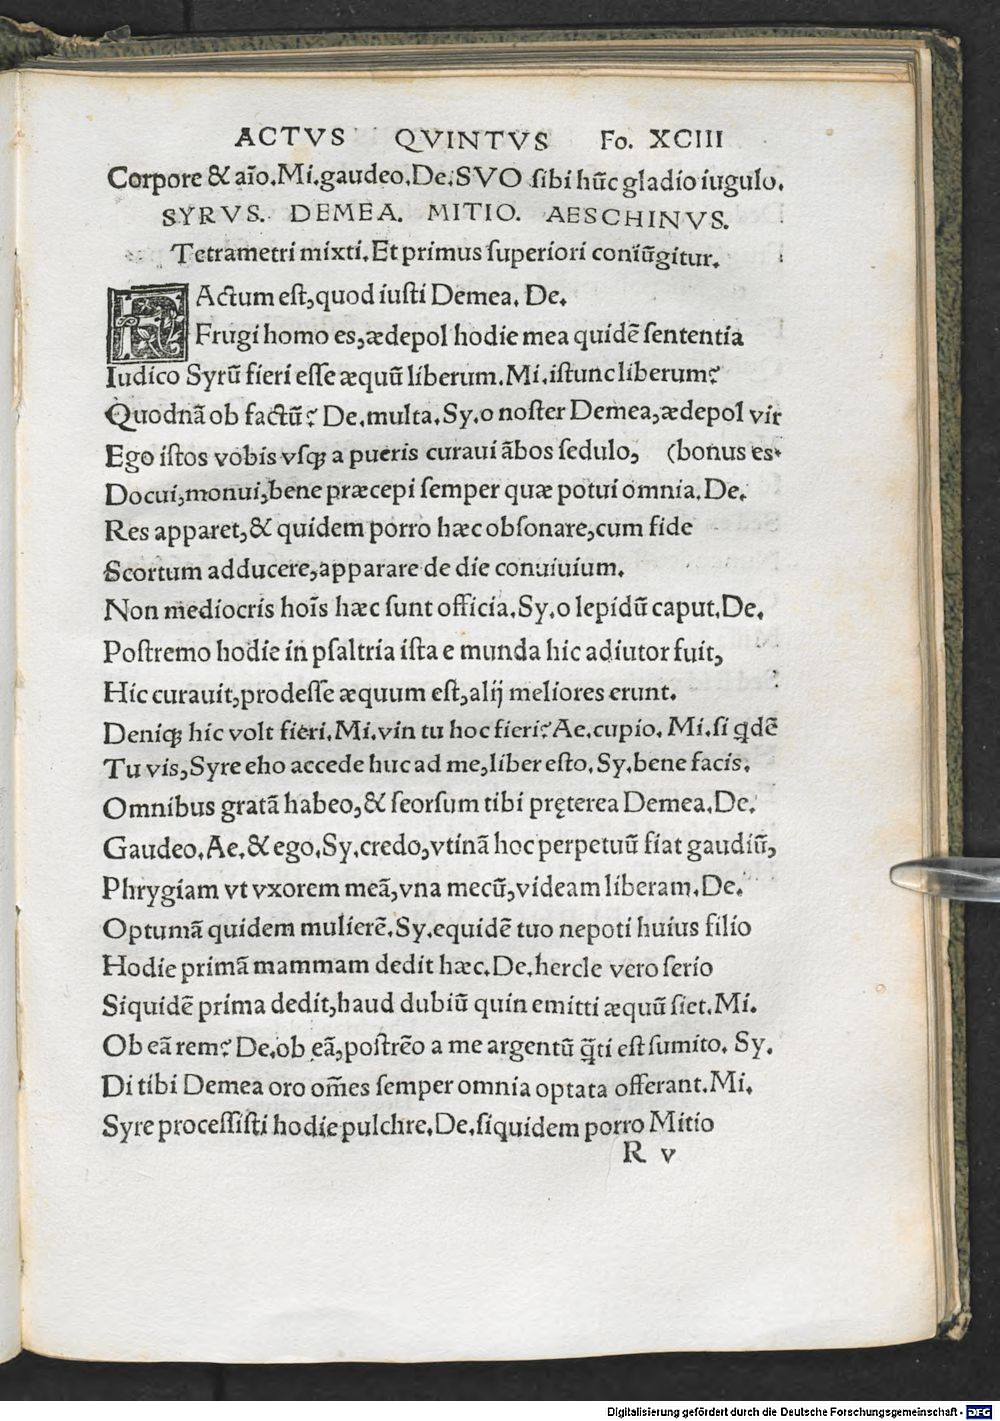 ACTVS QVINTVS Fo. XCIII
Corpore & aĩo. Mi. gaudeo. De. SVO ſibi hũc gladio iugulo.
SYRVS. DEMEA. MITIO. AESCHINVS.
Tetrametri mixti. Et primus ſuperiori coniũgitur.
FActum eſt, quod iuſti Demea. De.
Frugi homo es, ædepol hodie mea quidẽ ſententia
Iudico Syrũ fieri eſſe æquũ liberum. Mi. iſtunc liberum?
Quodnã ob factũ? De. multa. Sy. o noſter Demea, ædepol vir
Ego iſtos vobis vſqꝫ a pueris curaui ãbos ſedulo, (bonus es.
Docui, monui, bene præcepi ſemper quæ potui omnia. De.
Res apparet, & quidem porro hæc obſonare, cum fide
Scortum adducere, apparare de die conuiuium.
Non mediocris hoĩs hæc ſunt officia. Sy. o lepidũ caput. De.
Poſtremo hodie in pſaltria iſta e munda hic adiutor fuit,
Hic curauit, prodeſſe æquum eſt, alij meliores erunt.
Deniqꝫ hic volt fieri. Mi. vin tu hoc fieri? Ae. cupio. Mi. ſi q̃dẽ
Tu vis, Syre eho accede huc ad me, liber eſto. Sy. bene facis.
Omnibus gratã habeo, & ſeorſum tibi pręterea Demea. De.
Gaudeo. Ae. & ego. Sy. credo, vtinã hoc perpetuũ fiat gaudiũ,
Phrygiam vt vxorem meã, vna mecũ, videam liberam. De.
Optumã quidem mulierẽ. Sy. equidẽ tuo nepoti huius filio
Hodie primã mammam dedit hæc. De. hercle vero ſerio
Siquidẽ prima dedit, haud dubiũ quin emitti æquũ ſiet. Mi.
Ob eã rem? De. ob eã, poſtrẽo a me argentũ q̃ti eſt ſumito. Sy.
Di tibi Demea oro om̃es ſemper omnia optata offerant. Mi.
Syre proceſſiſti hodie pulchre. De. ſiquidem porro Mitio
R v
Digitalisierung gefördert durch die Deutsche Forschungsgemeinschaft - DFG